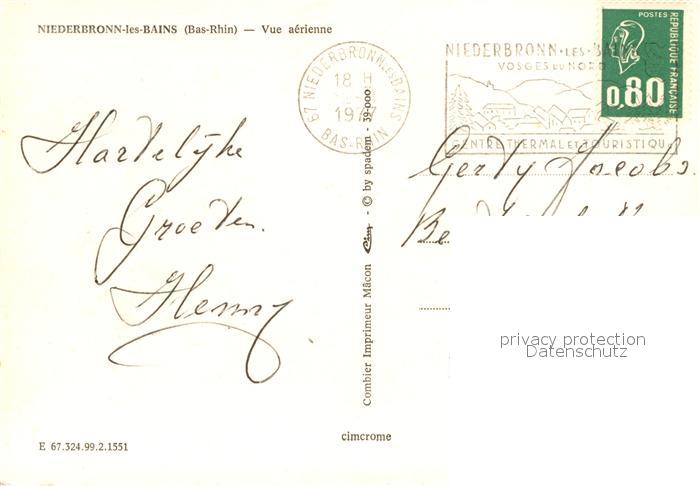 NIEDERBRONN-les-BAINS (Bas-Rhin) — Vue aérienne
Hartelijke
Groeten
Henny
E 67.324.99.2.1551
Combier Imprimeur Mâcon Cim - © by spadem - 39-000
cimcrome
67 NIEDERBRONN LES BAINS
18 H
1977
BAS-RHIN
NIEDERBRONN-LES-BAINS
VOSGES DU NORD
CENTRE THERMAL et TOURISTIQUE
POSTES
REPUBLIQUE FRANÇAISE
0,80
Gerty Jacobs.
privacy protection
Datenschutz